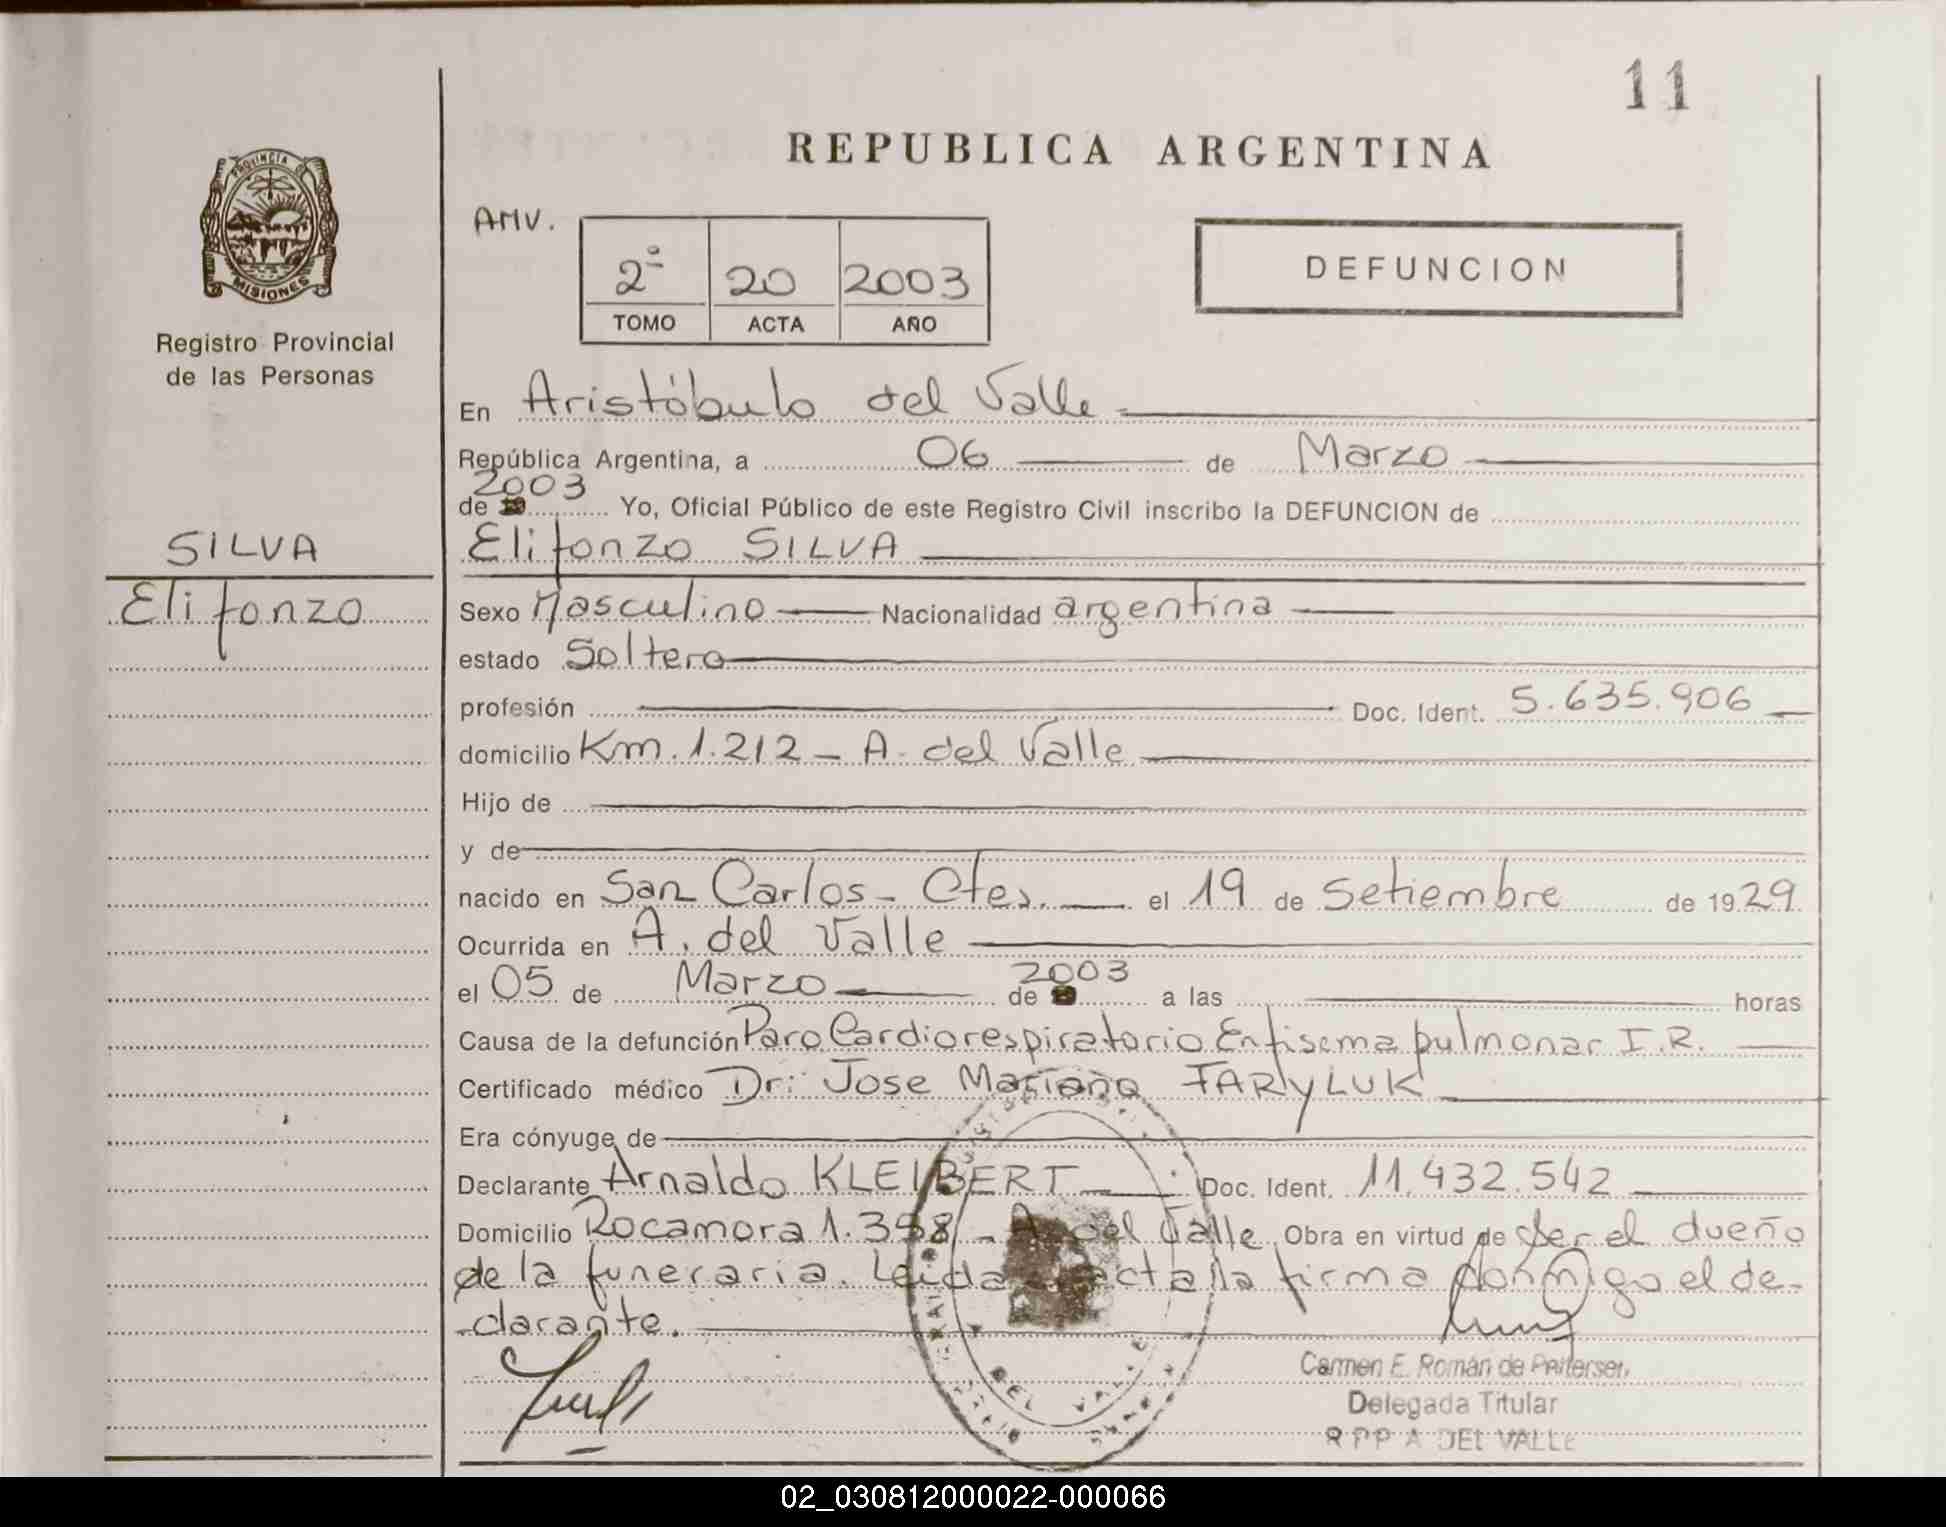 11
REPUBLICA ARGENTINA
PROVINCIA DE
MISIONES
Registro Provincial
de las Personas
AMV.
2º 20 2003
TOMO ACTA AÑO
DEFUNCION
En Aristóbulo del Valle
República Argentina, a 06 de Marzo
2003
de 19 Yo, Oficial Público de este Registro Civil inscribo la DEFUNCION de
SILVA
Elifonzo SILVA
Elifonzo
Sexo Masculino Nacionalidad argentina
estado Soltero
profesión Doc. Ident. 5.635.906
domicilio Km. 1.212 - A. del Valle
Hijo de
y de
nacido en San Carlos - Ctes. el 19 de Setiembre de 1929
Ocurrida en A. del Valle
el 05 de Marzo de 2003 a las horas
Causa de la defunción Paro Cardiorespiratorio Enfisema pulmonar I.R.
Certificado médico Dr: Jose Mariano TARYLUK
Era cónyuge de
Declarante Arnaldo KLEIBERT Doc. Ident. 11.432.542
Domicilio Rocamora 1.358 - A. del Valle Obra en virtud de ser el dueño
de la funeraria. Leída acta la firma conmigo el de-
clarante.
Carmen E. Román de Peitersen
Delegada Titular
RPP A DEL VALLE
DEL VALLE
02_030812000022-000066